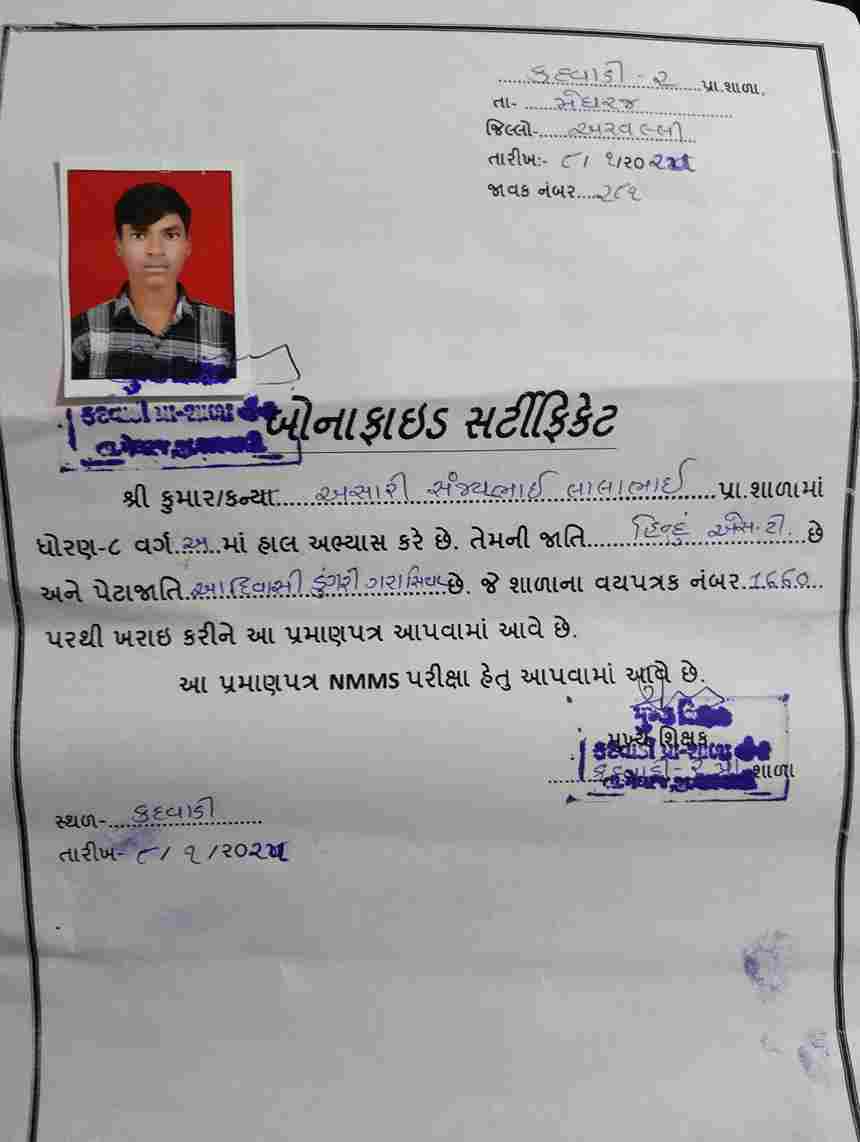 કદવાડી - ૨ પ્રા.શાળા.
તા- મેઘરજ
જિલ્લો- અરવલ્લી
તારીખ:- ૮/૧/૨૦૨૫
જાવક નંબર....૨૮૧
કટવાડી પ્રા-શાળા
બોનાફાઇડ સર્ટીફિકેટ
શ્રી કુમાર/કન્યા અસારી સંજયભાઈ લાલાભાઈ પ્રા.શાળામાં
ધોરણ-૮ વર્ગ અ માં હાલ અભ્યાસ કરે છે. તેમની જાતિ હિન્દુ એસ.ટી. છે
અને પેટાજાતિ આદિવાસી ડુંગરી ગરાસિયા છે. જે શાળાના વયપત્રક નંબર 1660
પરથી ખરાઇ કરીને આ પ્રમાણપત્ર આપવામાં આવે છે.
આ પ્રમાણપત્ર NMMS પરીક્ષા હેતુ આપવામાં આવે છે.
મુખ્ય શિક્ષક
કટવાડી પ્રા-શાળા
કદવાડી - ૨ પ્રા. શાળા
સ્થળ- કદવાડી
તારીખ- ૮/૧/૨૦૨૫